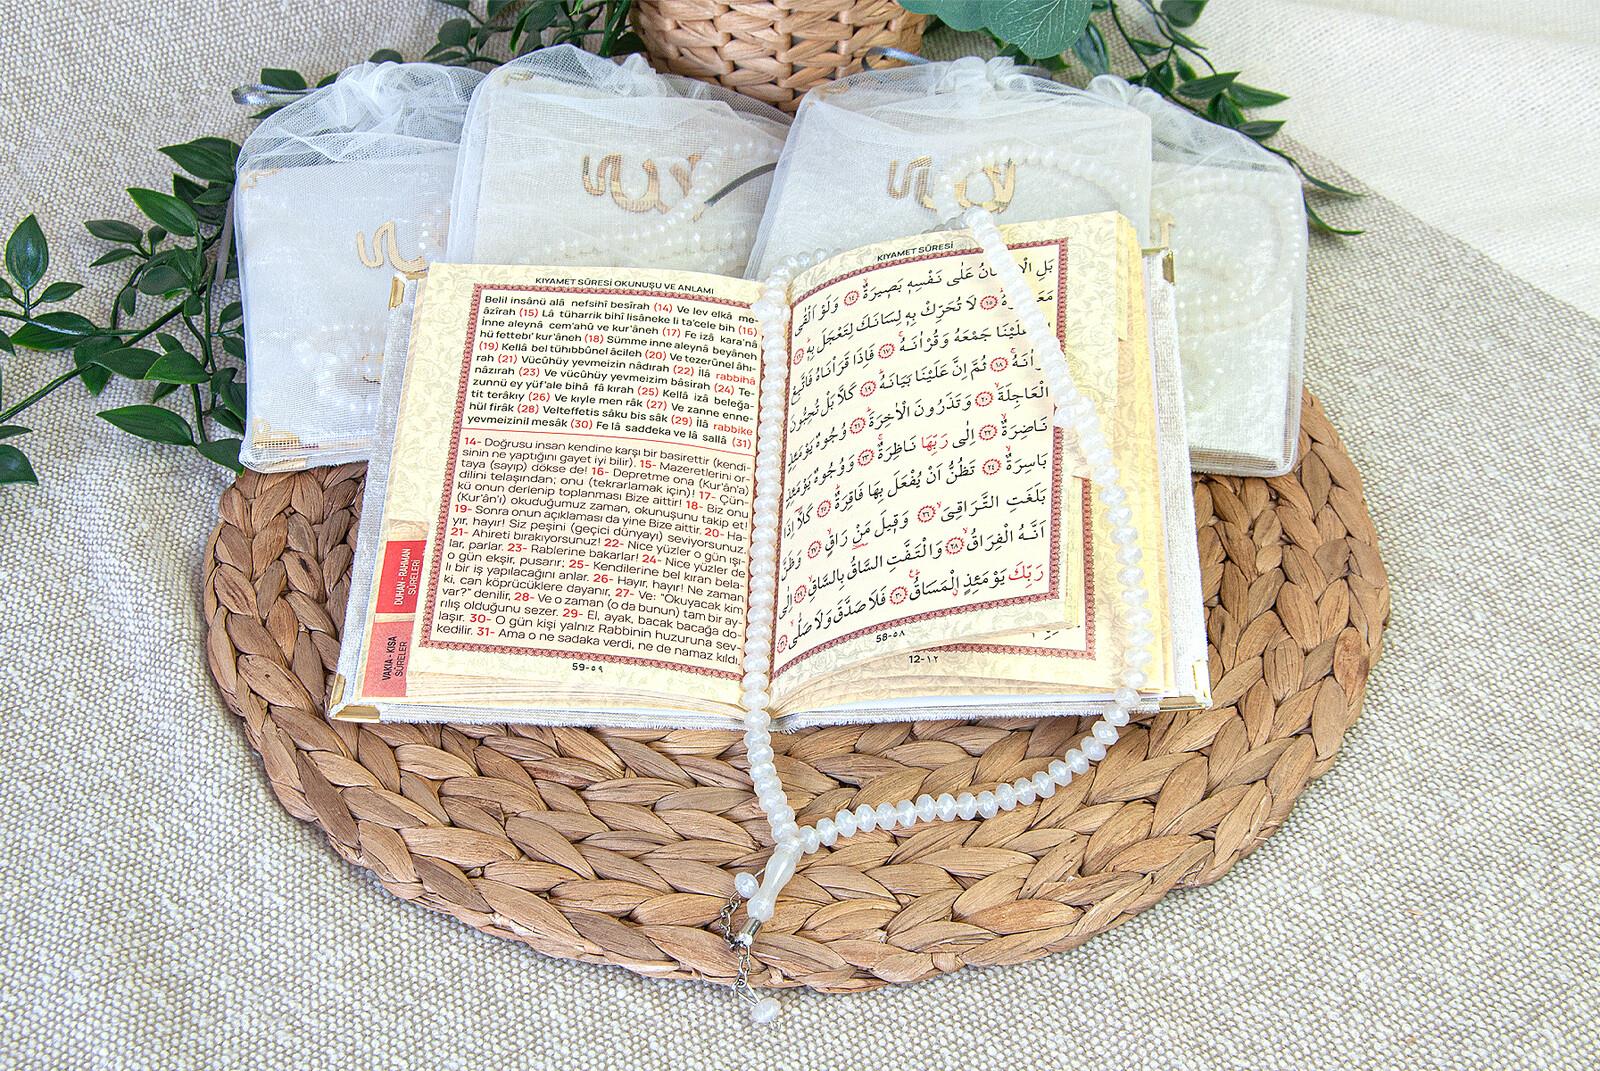 KIYAMET SÛRESİ OKUNUŞU VE ANLAMI
Belil insânü alâ nefsihî besîrah (14) Ve lev elkâ me-
âzîrah (15) Lâ tüharrik bihî lisâneke li ta'cele bih (16)
İnne aleynâ cem'ahû ve kur'âneh (17) Fe izâ kara'nâ
hü fettebı' kur'âneh (18) Sümme inne aleynâ beyâneh
(19) Kellâ bel tühıbbûnel âcileh (20) Ve tezerûnel âhı-
rah (21) Vücûhüy yevmeizin nâdırah (22) İlâ rabbihâ
nâzırah (23) Ve vücûhüy yevmeizim bâsirah (24) Te-
zunnü ey yüf'ale bihâ fâ kırah (25) Kellâ izâ beleğa-
tit terâkıy (26) Ve kıyle men râk (27) Ve zanne enne-
hül firâk (28) Velteffetis sâku bis sâk (29) İlâ rabbike
yevmeizinil mesâk (30) Fe lâ saddeka ve lâ sallâ (31)
14- Doğrusu insan kendine karşı bir basirettir (kendi-
sinin ne yaptığını gayet iyi bilir). 15- Mazeretlerini or-
taya (sayıp) dökse de! 16- Depretme ona (Kur'ân'a)
dilini telaşından; onu (tekrarlamak için)! 17- Çün-
kü onun derlenip toplanması Bize aittir! 18- Biz onu
(Kur'ân'ı) okuduğumuz zaman, okunuşunu takip et!
19- Sonra onun açıklaması da yine Bize aittir. 20- Ha-
yır, hayır! Siz peşini (geçici dünyayı) seviyorsunuz.
21- Ahireti bırakıyorsunuz! 22- Nice yüzler o gün ışı-
lar, parlar. 23- Rablerine bakarlar! 24- Nice yüzler de
o gün ekşir, pusarır; 25- Kendilerine bel kıran bela-
lı bir iş yapılacağını anlar. 26- Hayır, hayır! Ne zaman
ki, can köprücüklere dayanır, 27- Ve: "Okuyacak kim
var?" denilir, 28- Ve o zaman (o da bunun) tam bir ay-
rılış olduğunu sezer. 29- El, ayak, bacak bacağa do-
laşır. 30- O gün kişi yalnız Rabbinin huzuruna sev-
kedilir. 31- Ama o ne sadaka verdi, ne de namaz kıldı.
59-٥٩
DUHAN - RAHMAN
SÛRELERİ
VAKIA - KISA
SÛRELER
KIYAMET SÛRESİ
بَلِ عَلٰى نَفْسِه۪ بَص۪يرَةٌ ﴿١٤﴾ وَلَوْ اَلْقٰى
﴿١٥﴾ لَا تُحَرِّكْ بِه۪ لِسَانَكَ لِتَعْجَلَ بِه۪ ﴿١٦﴾
عَلَيْنَا جَمْعَهُ وَقُرْاٰنَهُ ﴿١٧﴾ فَاِذَا قَرَأْنَاهُ فَاتَّبِعْ
﴿١٨﴾ ثُمَّ اِنَّ عَلَيْنَا بَيَانَهُ ﴿١٩﴾ كَلَّا بَلْ تُحِبُّونَ
الْعَاجِلَةَ ﴿٢٠﴾ وَتَذَرُونَ الْاٰخِرَةَ ﴿٢١﴾ وُجُوهٌ يَوْمَئِذٍ
نَاضِرَةٌ ﴿٢٢﴾ اِلٰى رَبِّهَا نَاظِرَةٌ ﴿٢٣﴾ وَوُجُوهٌ يَوْمَئِذٍ
بَاسِرَةٌ ﴿٢٤﴾ تَظُنُّ اَنْ يُفْعَلَ بِهَا فَاقِرَةٌ ﴿٢٥﴾ كَلَّا اِذَا
بَلَغَتِ التَّرَاقِيَ ﴿٢٦﴾ وَق۪يلَ مَنْ رَاقٍ ﴿٢٧﴾ وَظَنَّ
اَنَّهُ الْفِرَاقُ ﴿٢٨﴾ وَالْتَفَّتِ السَّاقُ بِالسَّاقِ ﴿٢٩﴾ اِلٰى
رَبِّكَ يَوْمَئِذٍ الْمَسَاقُ ﴿٣٠﴾ فَلَا صَدَّقَ وَلَا صَلّٰى ﴿٣١﴾
58-٥٨
12-١٢